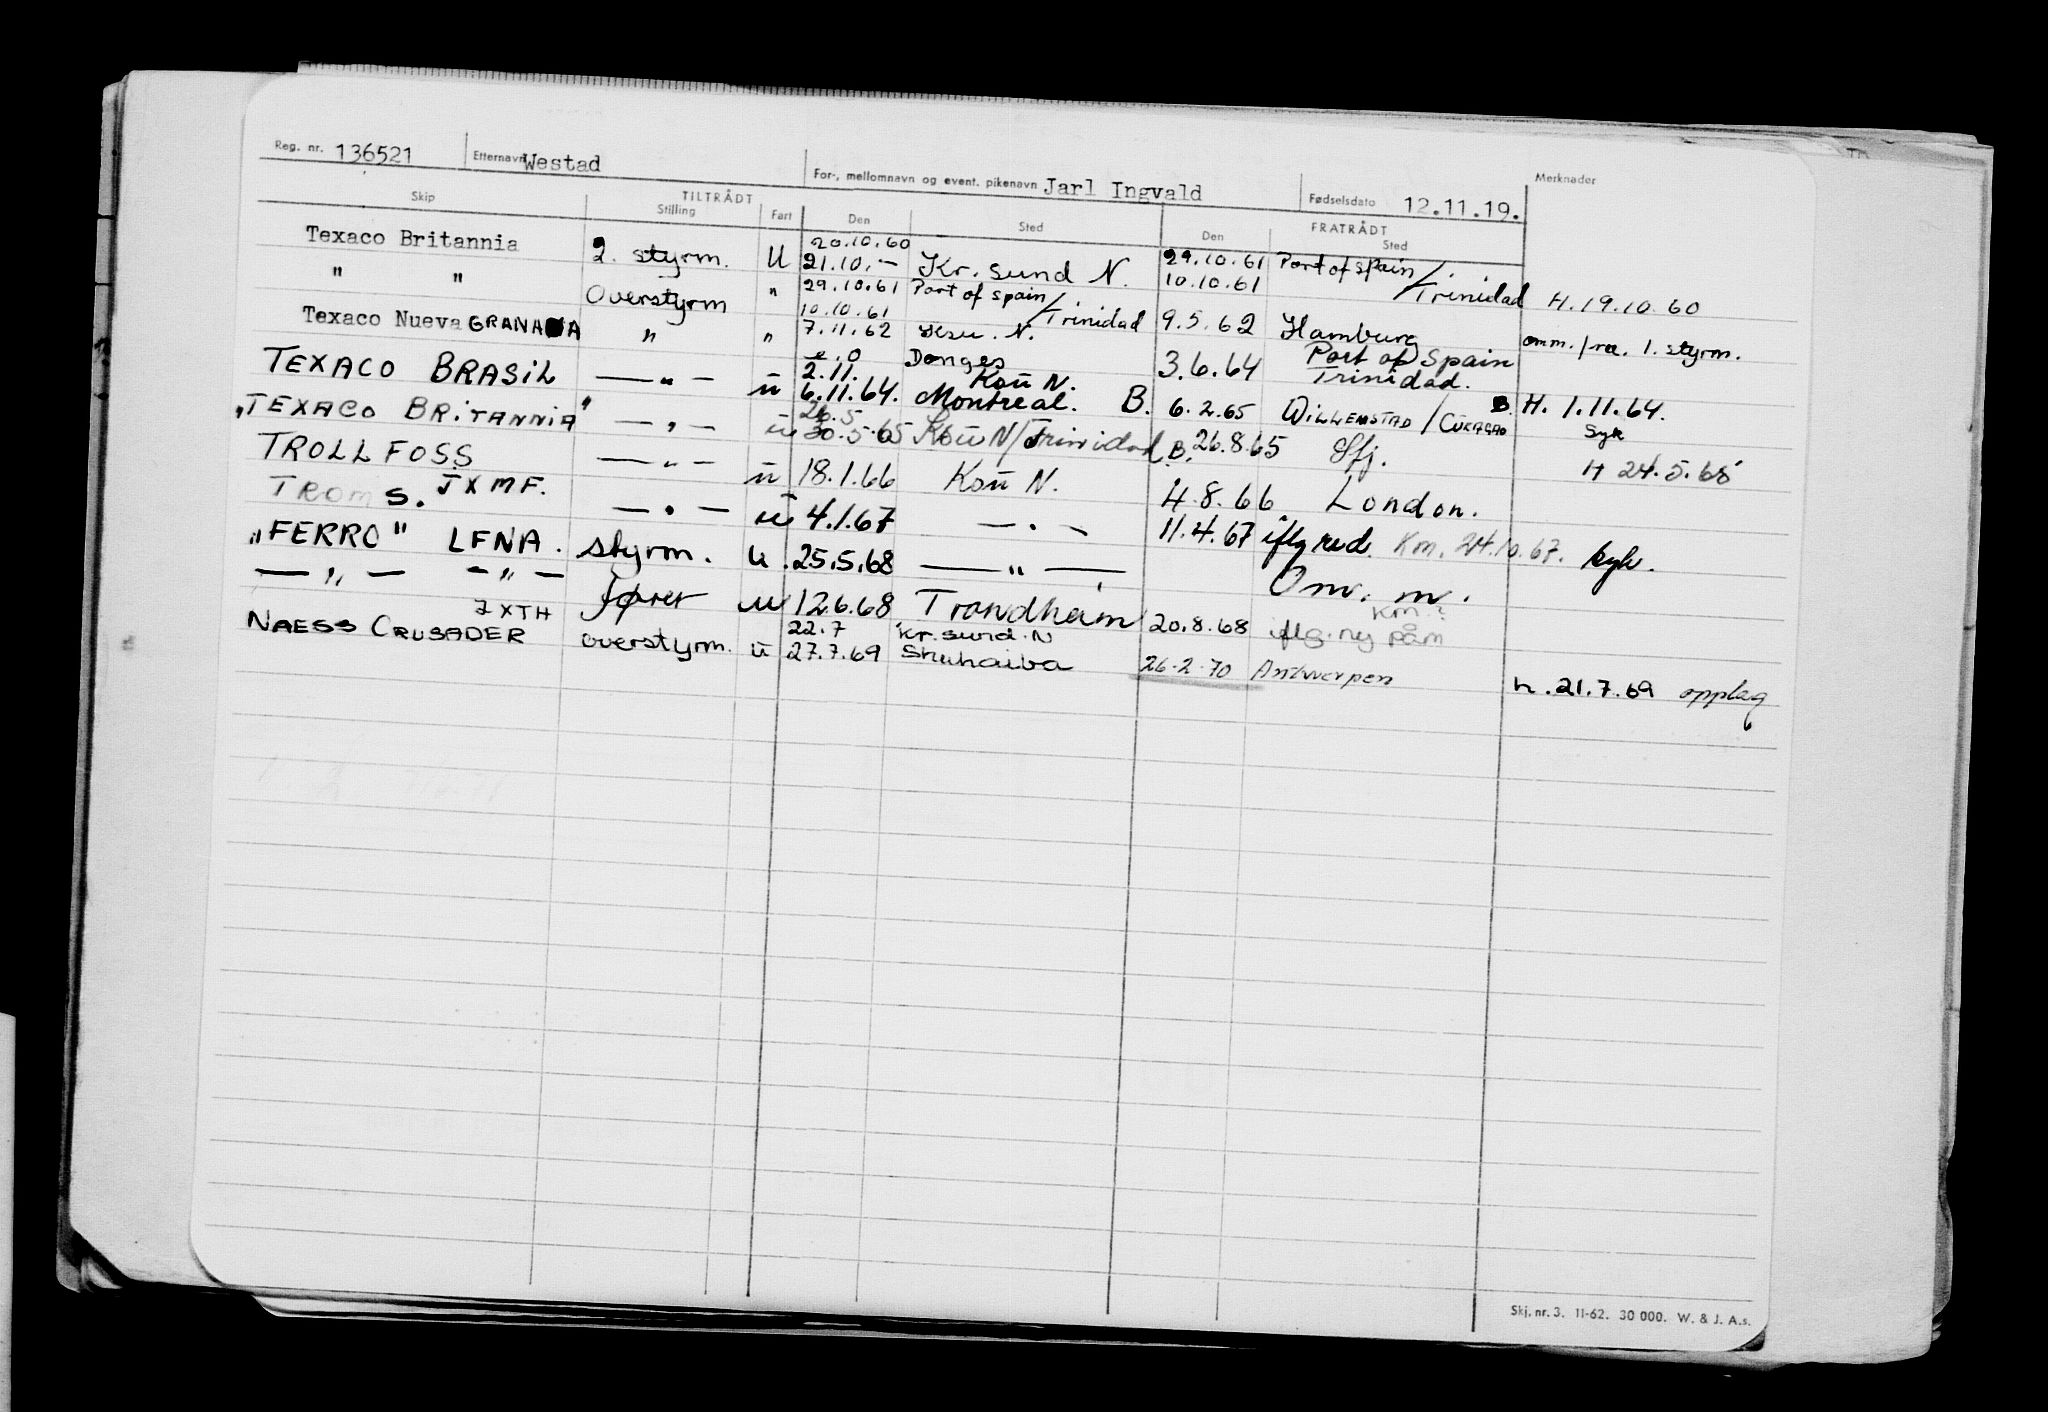 Reg. nr. 136521 Etternavn Westad For-, mellomnavn og event. pikenavn Jarl Ingvald Fødselsdato 12.11.19. Merknader
Skip TILTRÅDT Stilling Fart Den Sted FRATRÅDT Den Sted
Texaco Britannia 2. styrm. U 20.10.60 21.10.- Kr. sund N. 29.10.61 10.10.61 Port of Spain/Trinidad H.19.10.60
" " Overstyrm " 29.10.61 10.10.61 Port of Spain/Trinidad 9.5.62 Hamburg omm. fra. 1. styrm.
Texaco Nueva GRANADA " " 7.11.62 Ksu. N. Donges 3.6.64 Port of Spain Trinidad.
TEXACO BRASIL —"— ü 2.11. 6.11.64. Kaü N. Montreal. B. 6.2.65 WILLEMSTAD/CURACAO B. H. 1.11.64. Syk
"TEXACO BRITANNIA" —"— ü 26.5 30.5.65 Koü N/Trinidad B. 26.8.65 Sfj. H 24.5.65
TROLLFOSS —"— ü 18.1.66 Koü N. 4.8.66 London.
TROMS. JXMF. —"— ü 4.1.67 —"— 11.4.67 iflg red. Km. 24.10.67. syk.
"FERRO" LENA. styrm. U. 25.5.68 —"— Omr. m.
—"— —"— fører U 12.6.68 Trondheim 20.8.68 iflg. ny påm Km.?
NAESS CRUSADER JXTH overstyrm. ü 22.7 27.7.69 Kr.sund.N Shuhaiba 26.2.70 Antwerpen h.21.7.69 opplag
Skj. nr. 3. 11-62. 30 000. W. & J. A.s.